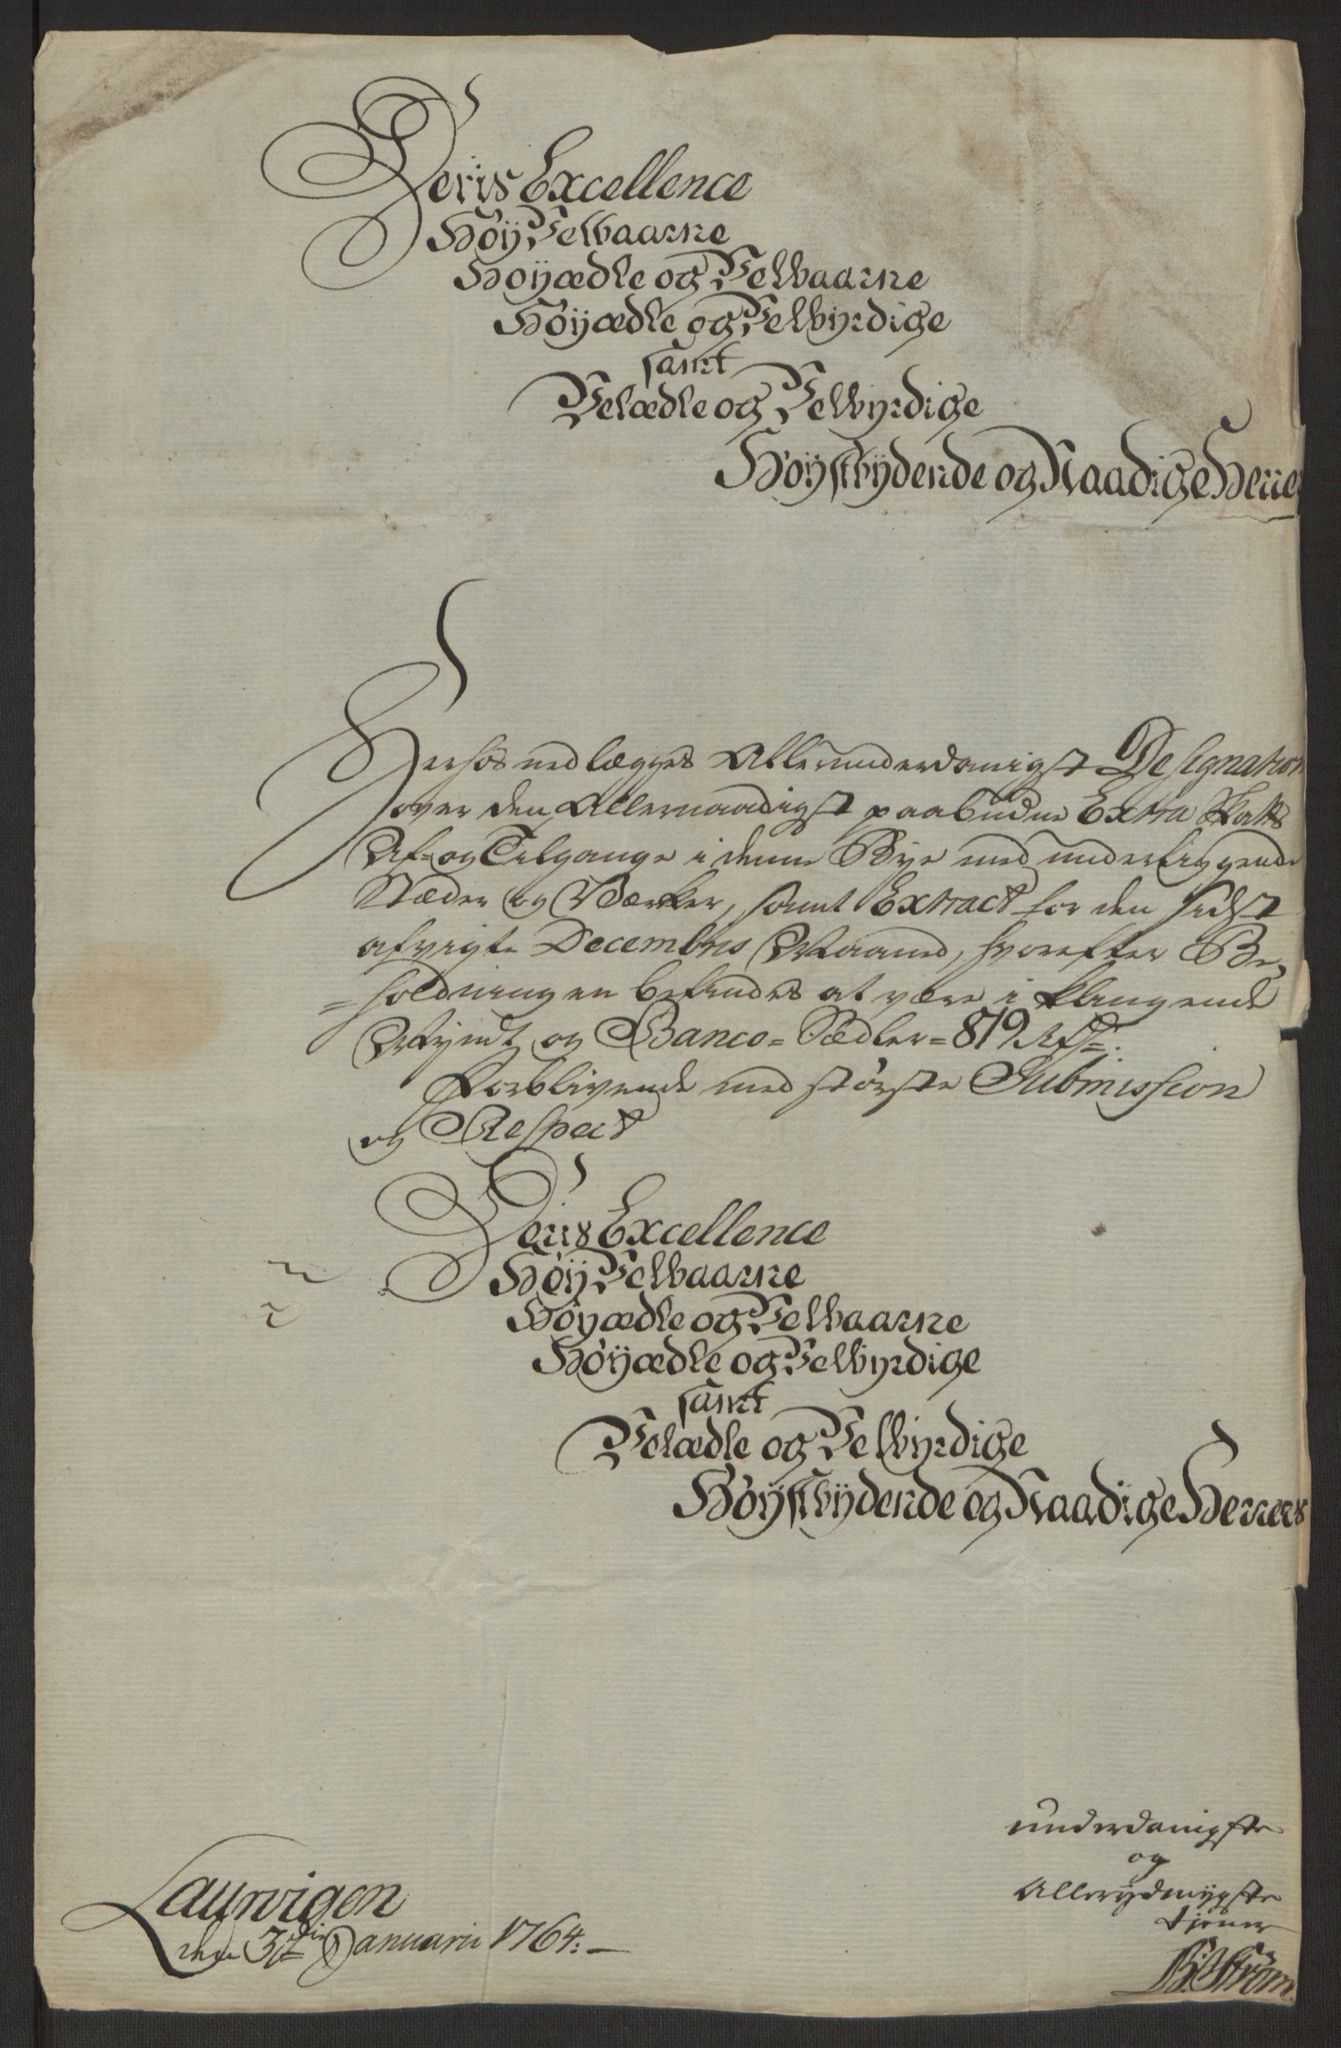 Deris Excellence
HøyVelbaarne
Høyædle og Velbaarne
Høyædle og Velbyrdige
samt
Velædle og Velbyrdige
Høystbydende og Naadige Herrer
Herhos nedlægges Allerunderdanigst Designation
over den Allernaadigst paabudne Extra Skatts
Af- og Tilgange i denne Bye med underliggende
Stæder og Værker, samt Extract for den sidst
afvigte Decembris Maaned, hvorefter Be-
=holdningen befindes at være i klingende
Myndt og Banco=Sedler= 879 Rd
Forblivende med største Submission
og Respect
Deris Excellence
HøyVelbaarne
Høyædle og Velbaarne
Høyædle og Velbyrdige
samt
Velædle og Velbyrdige
Høystbydende og Naadige Herrers
underdanigste
og
Allerydmygste
tjener
Laurvigen
den Januarii 1764:
Strøm